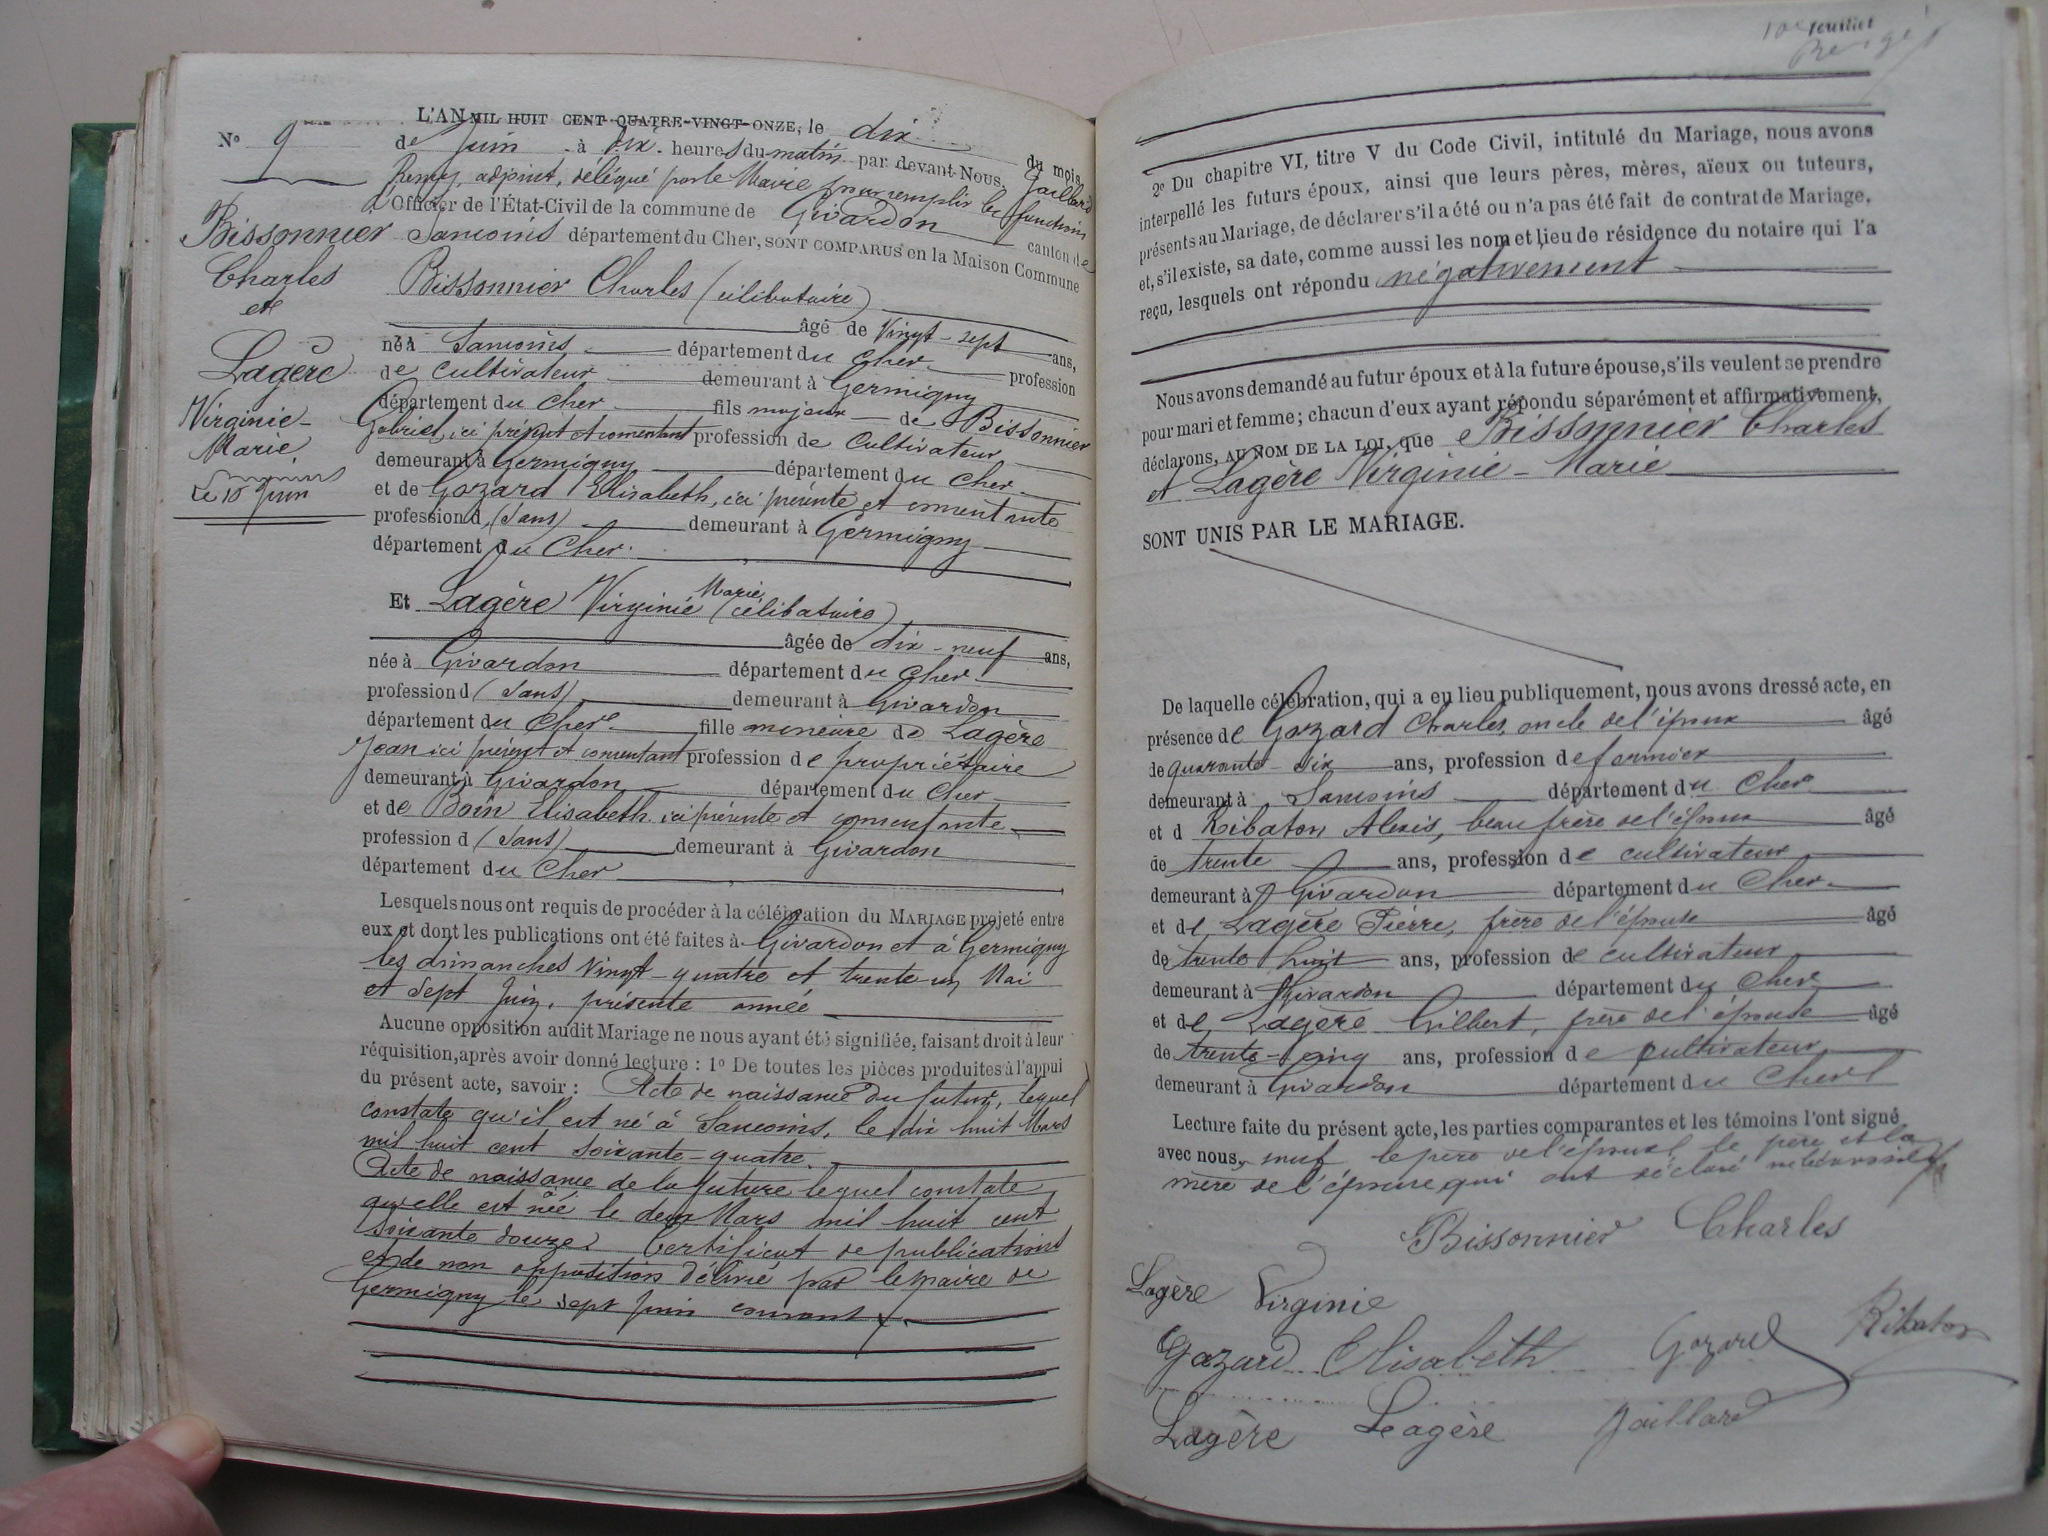 N° 9
Bissonnier
Charles
et
Lagère
Virginie-
Marie
Le 10 Juin
L'AN MIL HUIT CENT QUATRE-VINGT-ONZE, le dix du mois
de Juin à dix heures du matin par devant Nous, Jaillard
Remy, adjoint, délégué par le Maire pour remplir les fonctions
d'Officier de l'État-Civil de la commune de Givardon canton de
Sancoins département du Cher, SONT COMPARUS en la Maison Commune
Bissonnier Charles (célibataire)
âgé de Vingt-sept ans,
né à Sancoins département du Cher profession
de cultivateur demeurant à Germigny
département du Cher fils majeur de Bissonnier
Gabriel, ici présent et consentant profession de Cultivateur
demeurant à Germigny département du Cher
et de Gozard Elisabeth, ici présente et consentante
profession d (Sans) demeurant à Germigny
département du Cher.
Et Lagère Virginie Marie (célibataire)
âgée de dix-neuf ans,
née à Givardon département du Cher
profession d (Sans) demeurant à Givardon
département du Cher fille mineure de Lagère
Jean ici présent et consentant profession de propriétaire
demeurant à Givardon département du Cher
et de Boin Elisabeth ici présente et consentante
profession d (Sans) demeurant à Givardon
département du Cher
Lesquels nous ont requis de procéder à la célébration du MARIAGE projeté entre
eux et dont les publications ont été faites à Givardon et à Germigny
les dimanches Vingt-quatre et trente-un Mai
et Sept Juin, présente année
Aucune opposition audit Mariage ne nous ayant été signifiée, faisant droit à leur
réquisition, après avoir donné lecture : 1° De toutes les pièces produites à l'appui
du présent acte, savoir : Acte de naissance du futur, lequel
constate qu'il est né à Sancoins, le dix huit Mars
mil huit cent soixante-quatre.
Acte de naissance de la future lequel constate
qu'elle est née le deux Mars mil huit cent
soixante douze. Certificat de publications
et de non opposition délivré par le Maire de
Germigny le sept Juin courant
10e feuillet
2° Du chapitre VI, titre V du Code Civil, intitulé du Mariage, nous avons
interpellé les futurs époux, ainsi que leurs pères, mères, aïeux ou tuteurs,
présents au Mariage, de déclarer s'il a été ou n'a pas été fait de contrat de Mariage,
et, s'il existe, sa date, comme aussi les nom et lieu de résidence du notaire qui l'a
reçu, lesquels ont répondu négativement
Nous avons demandé au futur époux et à la future épouse, s'ils veulent se prendre
pour mari et femme ; chacun d'eux ayant répondu séparément et affirmativement,
déclarons, AU NOM DE LA LOI, que Bissonnier Charles
et Lagère Virginie-Marie
SONT UNIS PAR LE MARIAGE.
De laquelle célébration, qui a eu lieu publiquement, nous avons dressé acte, en
présence de Gozard Charles, oncle de l'époux âgé
de quarante-six ans, profession de fermier
demeurant à Sancoins département du Cher
et d Ribaton Alexis, beau frère de l'époux âgé
de trente ans, profession de cultivateur
demeurant à Givardon département du Cher
et de Lagère Pierre, frère de l'épouse âgé
de trente huit ans, profession de cultivateur
demeurant à Givardon département du Cher
et de Lagère Gilbert, frère de l'épouse âgé
de trente-cinq ans, profession de cultivateur
demeurant à Givardon département du Cher
Lecture faite du présent acte, les parties comparantes et les témoins l'ont signé
avec nous, sauf le père de l'époux, le père et la
mère de l'épouse qui ont déclaré ne le savoir
Bissonnier Charles
Lagère Virginie
Gozard Elisabeth Gozard Ribaton
Lagère Lagère Jaillard